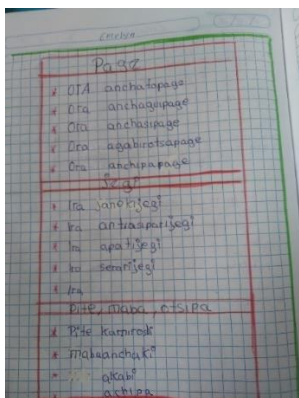 Page
OTA anchatapage
Ora anchagsipage
Ora anchasipage
Ora agabirotsapage
Ora anchipapage
Jegi
Ira janekijegi
Ira antiasparijegi
Ira apatijegi
Ira semrijegi
Ira
Pite, maba, otsipa
Pite kamirosk
mabaanchaki
akabi